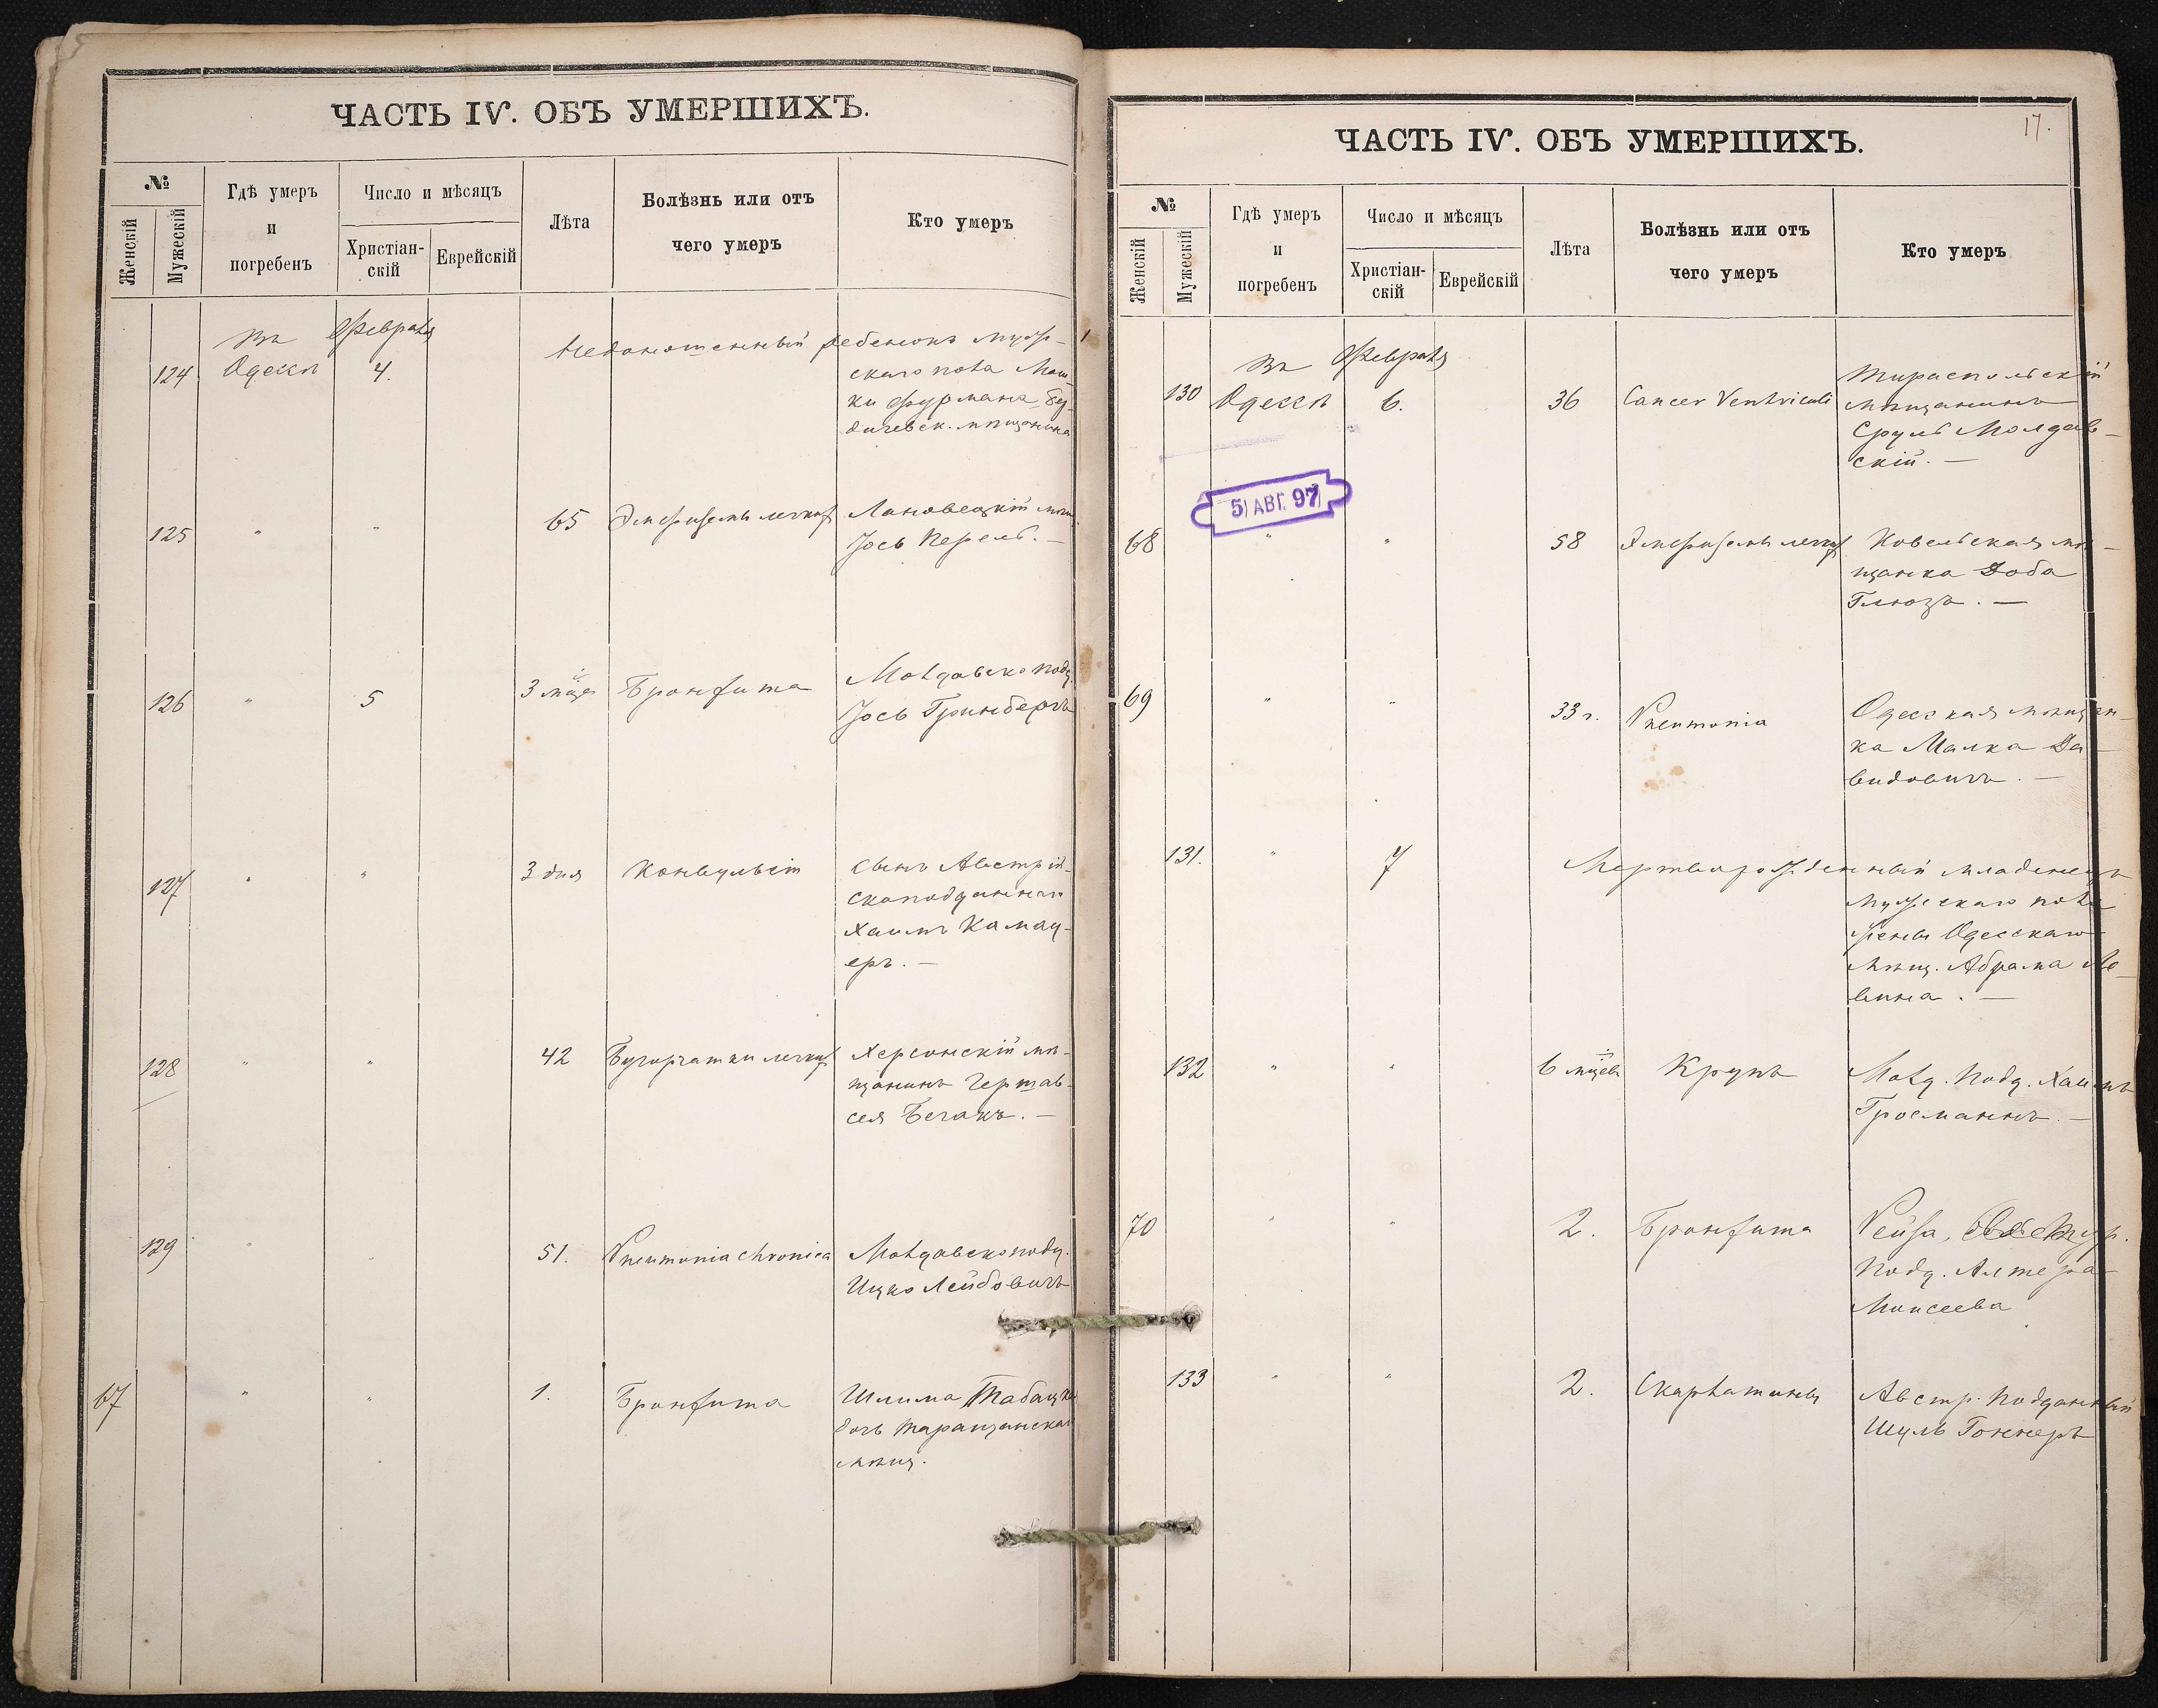 ЧАСТЬ IV. ОБЪ УМЕРШИХЪ.
№
Женскій
Мужескій
Гдѣ умеръ
и
погребенъ
Число и мѣсяцъ
Христіан-
скій
Еврейскій
Лѣта
Болѣзнь или отъ
чего умеръ
Кто умеръ
124 Въ Одессѣ Февраля 4. Недоношенный ребенокъ муж-
скаго пола Мош-
ки Фурмана Бер-
дичевск. мѣщанина
125 " " 65 Эмфиземы легких Лановецкій мѣщ.
Іось Перель. —
126 " 5 3 мѣс Бронхита Молдавскоподд.
Іось Гринбергъ
127 " " 3 дня Конвульсіи сынъ Австрій-
скоподданнаго
Хаимъ Камац-
еръ. —
128 " " 42 Бугорчатки легких Херсонскій мѣ-
щанинъ
Бечакъ. —
129 " " 51. Pneumonia chronica Молдавскоподд.
Ицко Лейбовичъ
67 " " 1. Бронхита Шлима Табацк
дочь Таращанска
мѣщ.
ЧАСТЬ IV. ОБЪ УМЕРШИХЪ.
17.
№
Женскій
Мужескій
Гдѣ умеръ
и
погребенъ
Число и мѣсяцъ
Христіан-
скій
Еврейскій
Лѣта
Болѣзнь или отъ
чего умеръ
Кто умеръ
130 Въ Одессѣ Февраля 6. 36 Cancer Ventriculi Тираспольскій
мѣщанинъ
Сруль Молдав-
скій. —
5 АВГ. 97
68 " " 58 Эмфиземы легких Ковельская мѣ-
щанка Доба
Глюзъ. —
69 " " 33 г. Pneumonia Одесская мѣщан-
ка Малка Да-
видовичъ. —
131. " 7 Мертворожденный младенецъ
мужескаго пола
жены Одесскаго
мѣщ. Абрама Ле-
вина. —
132 " " 6 мѣсев Крупъ Молд. подд. Хаимъ
Гросманнъ. —
70 " " 2. Бронхита Рейза,
подд. Алтера
Моисеева
133 " " 2. Скарлатины Австр. подданный
Шуль Гоннеръ